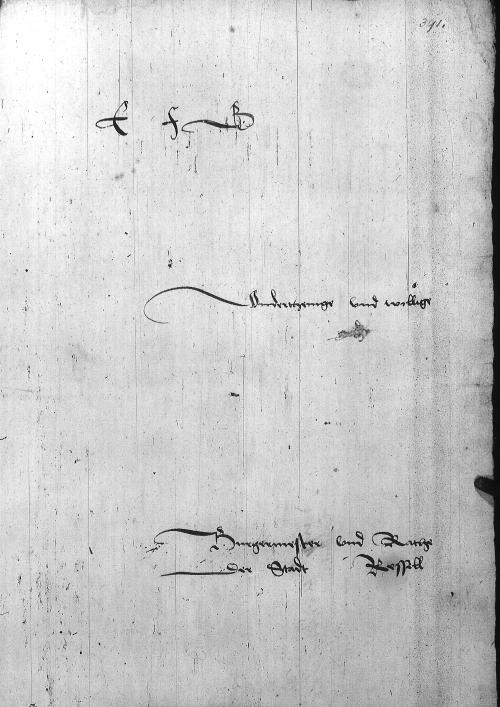 391.
E f B
Undertzenige und willige
Burgermeister und Rathe
der Stadt Ressell